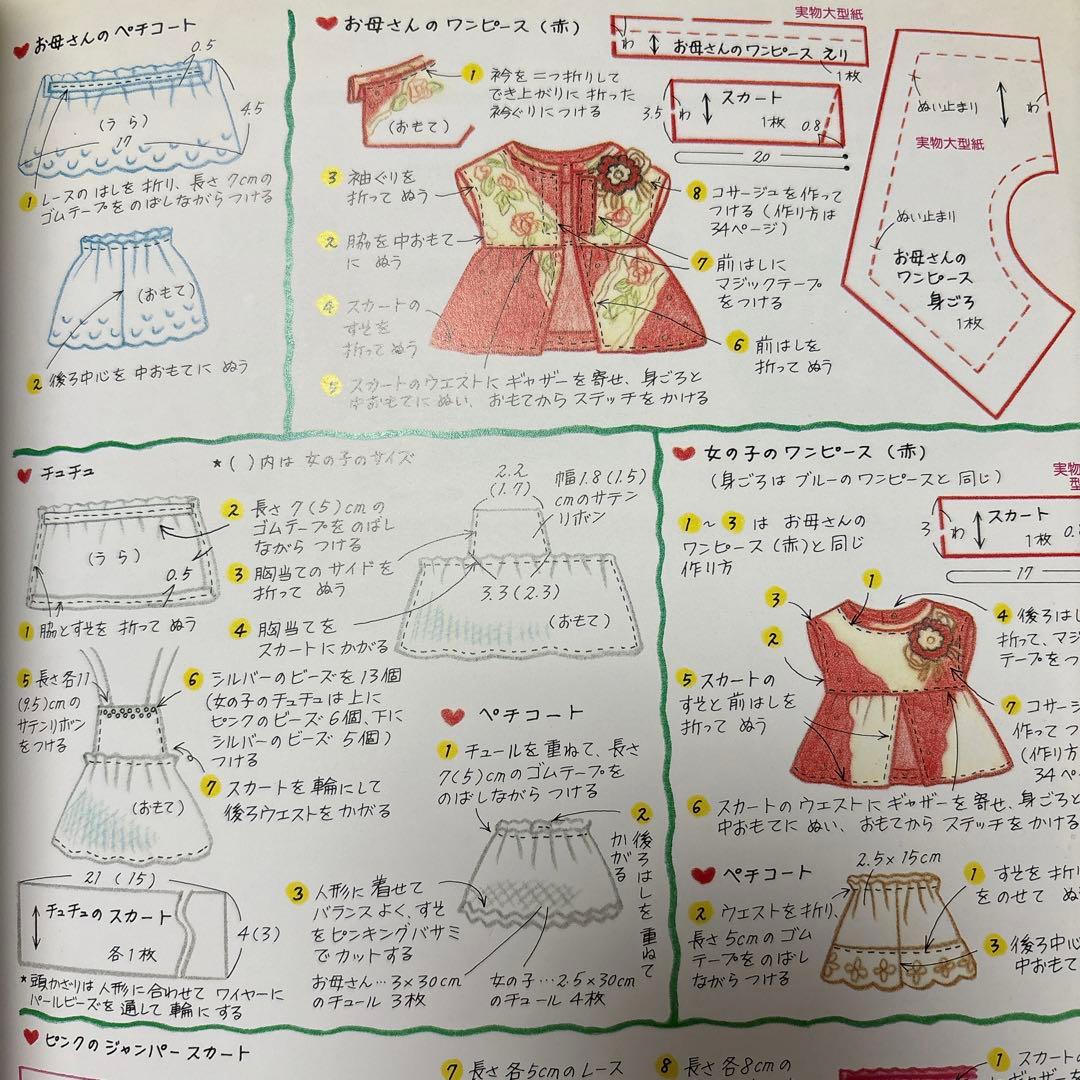 お母さんのペチコート
0.5
(うら)
17
4.5
1 レースのはしを折り、長さ7cmの
ゴムテープをのばしながらつける
(おもて)
2 後ろ中心を中おもてにぬう
お母さんのワンピース(赤)
1 衿を二つ折りして
でき上がりに折った
衿ぐりにつける
(おもて)
3 袖ぐりを
折ってぬう
2 脇を中おもて
にぬう
4 スカートの
すそを
折ってぬう
5 スカートのウエストにギャザーを寄せ、身ごろと
中おもてにぬい、おもてからステッチをかける
8 コサージュを作って
つける(作り方は
34ページ)
7 前はしに
マジックテープ
をつける
6 前はしを
折ってぬう
実物大型紙
わ
お母さんのワンピース えり
1枚
スカート
1枚
3.5
わ
0.8
20
ぬい止まり
わ
実物大型紙
ぬい止まり
お母さんの
ワンピース
身ごろ
1枚
チュチュ
★( )内は女の子のサイズ
(うら)
0.5
1 脇とすそを折ってぬう
2 長さ7(5)cmの
ゴムテープをのばし
ながらつける
3 胸当てのサイドを
折ってぬう
4 胸当てを
スカートにかがる
2.2
(1.7)
幅1.8(1.5)
cmのサテン
リボン
3.3(2.3)
(おもて)
5 長さ各11
(9.5)cmの
サテンリボン
をつける
6 シルバーのビーズを13個
(女の子のチュチュは上に
ピンクのビーズ6個、下に
シルバーのビーズ5個)
つける
7 スカートを輪にして
後ろウエストをかがる
(おもて)
21(15)
チュチュのスカート
各1枚
4(3)
★頭かざりは人形に合わせてワイヤーに
パールビーズを通して輪にする
ペチコート
1 チュールを重ねて、長さ
7(5)cmのゴムテープを
のばしながらつける
2 後ろはしを重ねて
かがる
3 人形に着せて
バランスよく、すそ
をピンキングバサミ
でカットする
お母さん…3×30cm
のチュール3枚
女の子…2.5×30cm
のチュール4枚
女の子のワンピース(赤)
(身ごろはブルーのワンピースと同じ)
1〜3は お母さんの
ワンピース(赤)と同じ
作り方
実物
型
スカート
1枚
3
わ
0.
17
1
3
2
4 後ろはし
折って、マジ
テープをつ
5 スカートの
すそと前はしを
折ってぬう
7 コサージ
作ってつ
(作り方
34ペ
6 スカートのウエストにギャザーを寄せ、身ごろと
中おもてにぬい、おもてからステッチをかける
ペチコート
2.5×15cm
1 すそを折り
をのせてぬ
2 ウエストを折り、
長さ5cmのゴム
テープをのばし
ながらつける
3 後ろ中心
中おもて
ピンクのジャンパースカート
7 長さ各5cmのレース
8 長さ各8cmの
1 スカートの